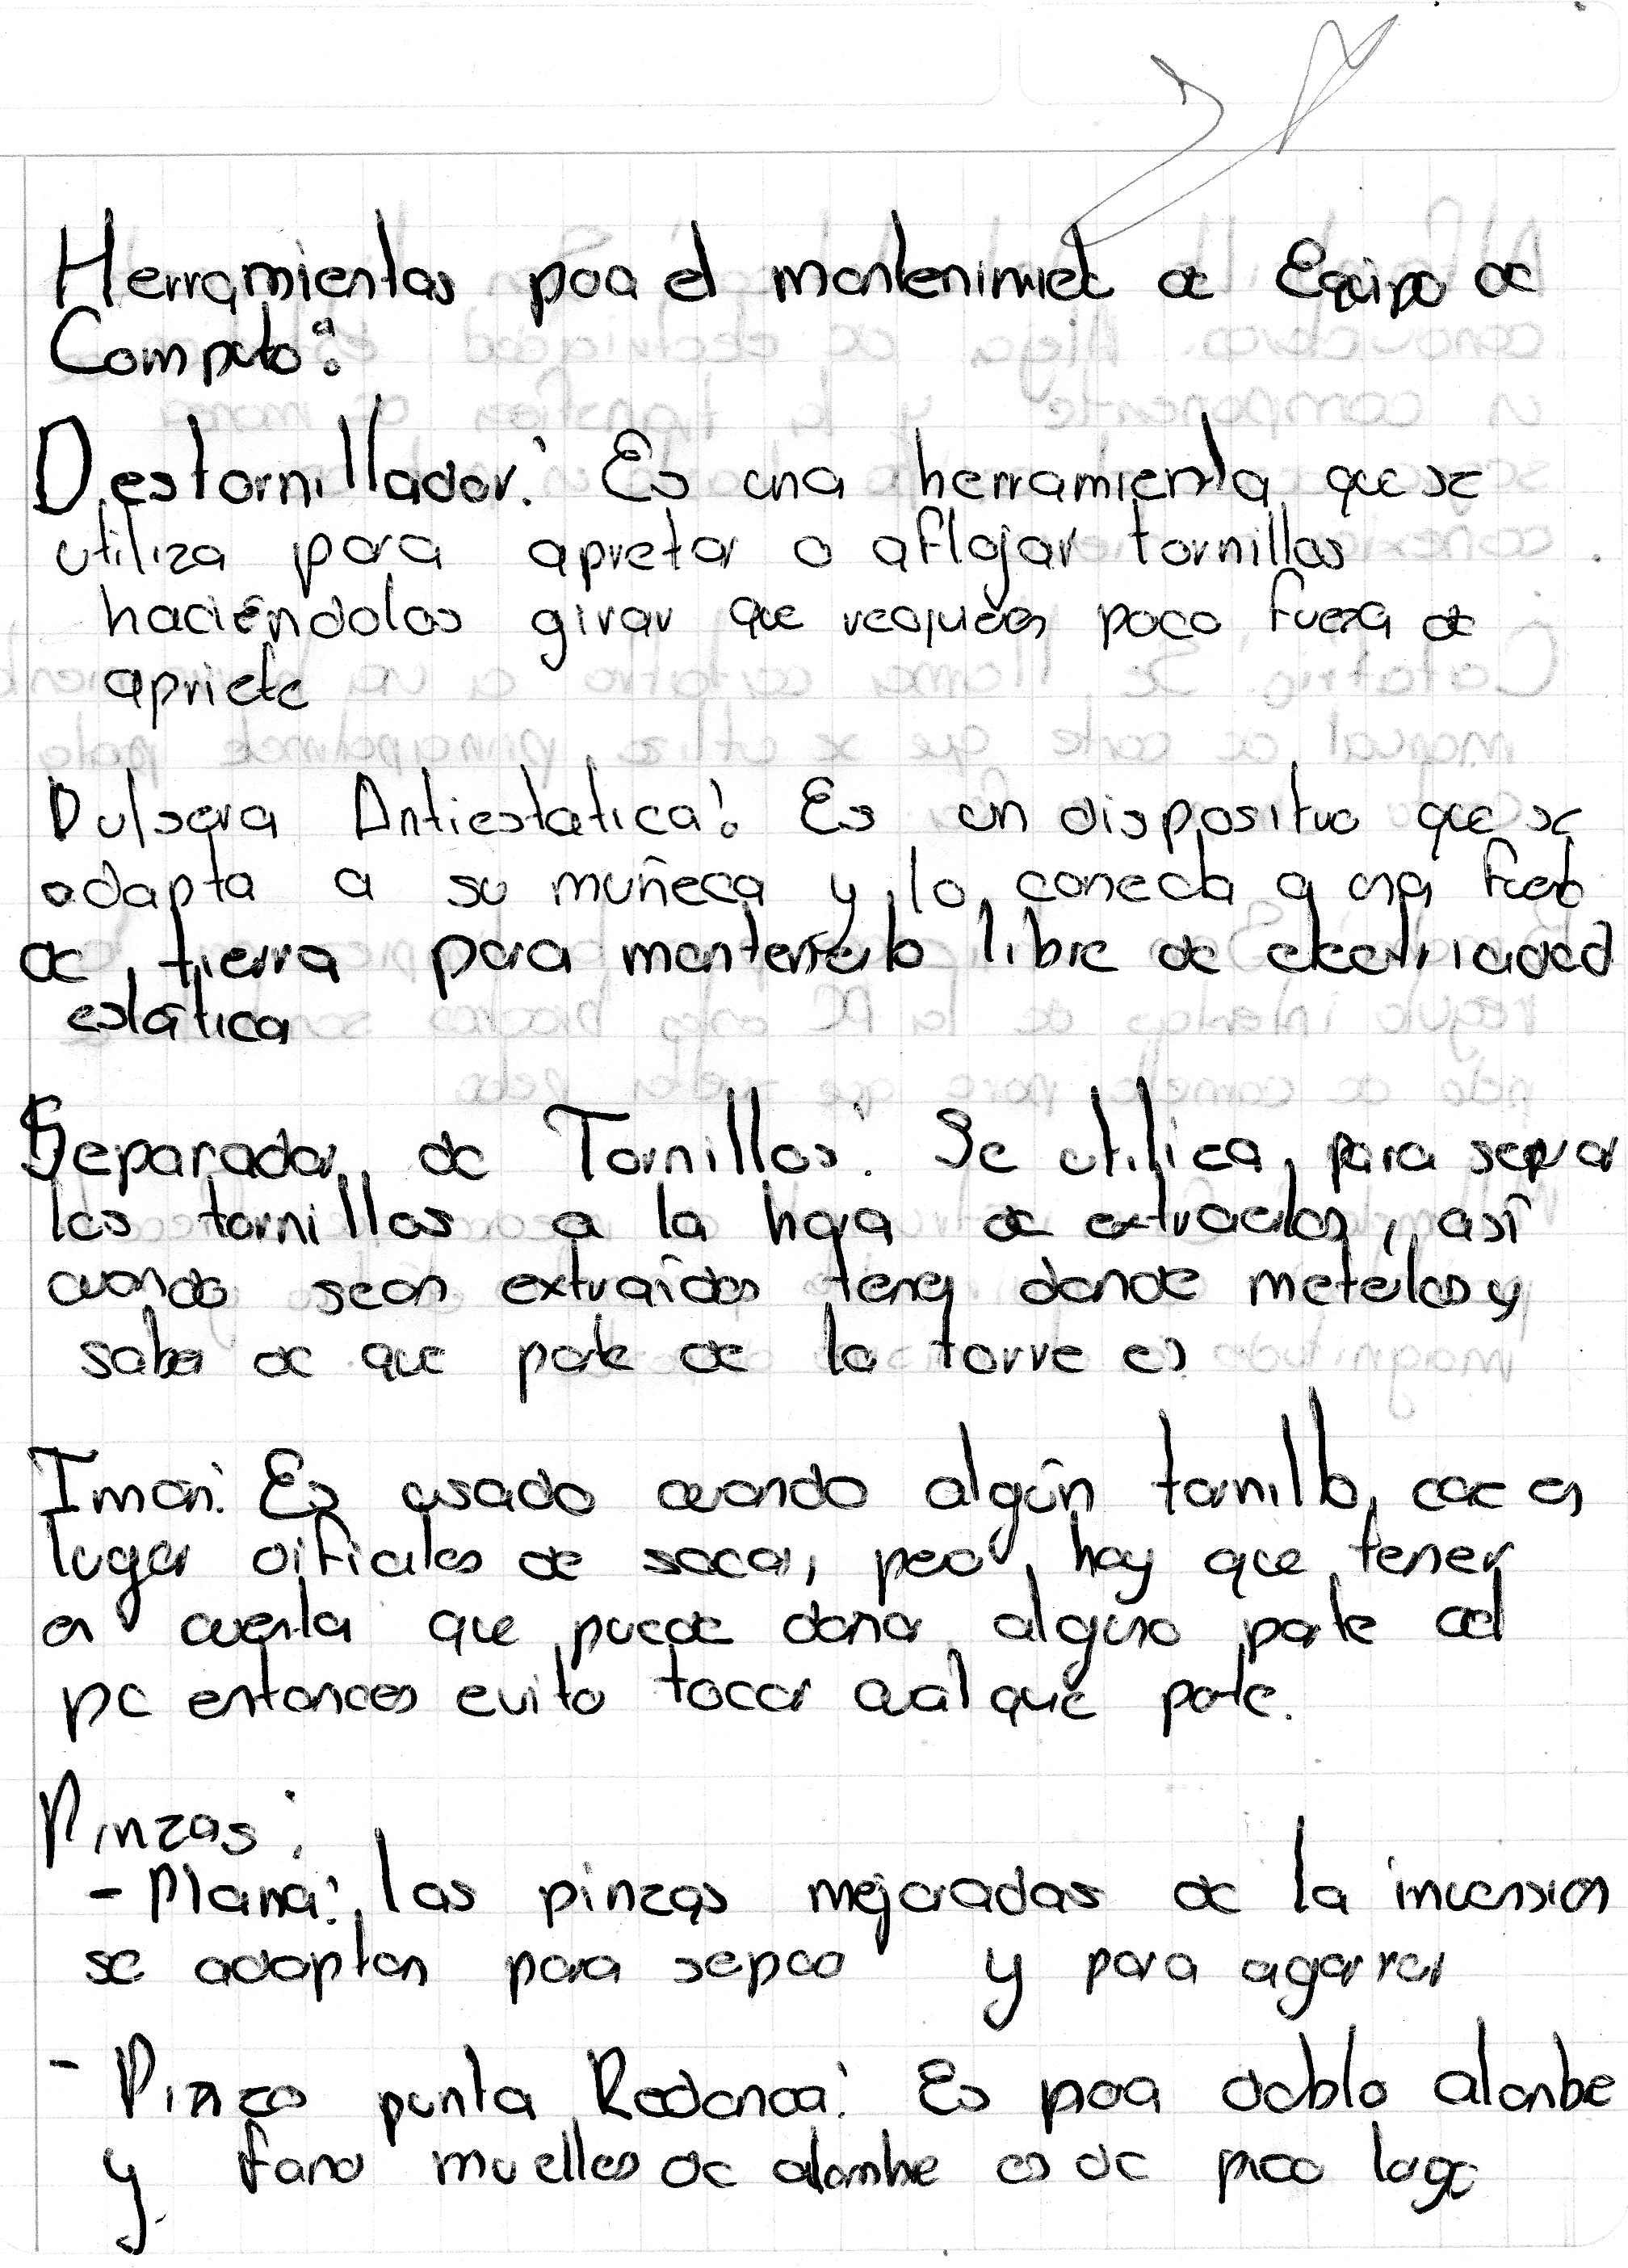 Herramientas para el mantenimiet de Equipo de
Computo:
Destornillador: Es una herramienta que se
utiliza para apretar o aflojar tornillos
haciéndolos girar que requieren poco fuerza de
apriete
Pulsera Antiestatica: Es un dispositivo que se
adapta a su muñeca y lo conecta a una
de tierra para mantenerlo libre de electricidad
estática
Separador de Tornillos: Se utilica para separar
los tornillos a la hora de extraerlos, así
cuando sean extraídos teng donde meterlos y
saber de que parte de la torre es
Iman: Es usado cuando algún tornillo cae en
lugar dificiles de sacar, pero hay que tener
en cuenta que puede danar alguna parte del
pc entonces evito tocar cualquie parte.
Pinzas:
- Plana: las pinzas mejoradas de la
se adaptan para separa y para agarrar
- Pinza punta Redonda: Es para doblo alambe
y muelles de alambre es de pico largo